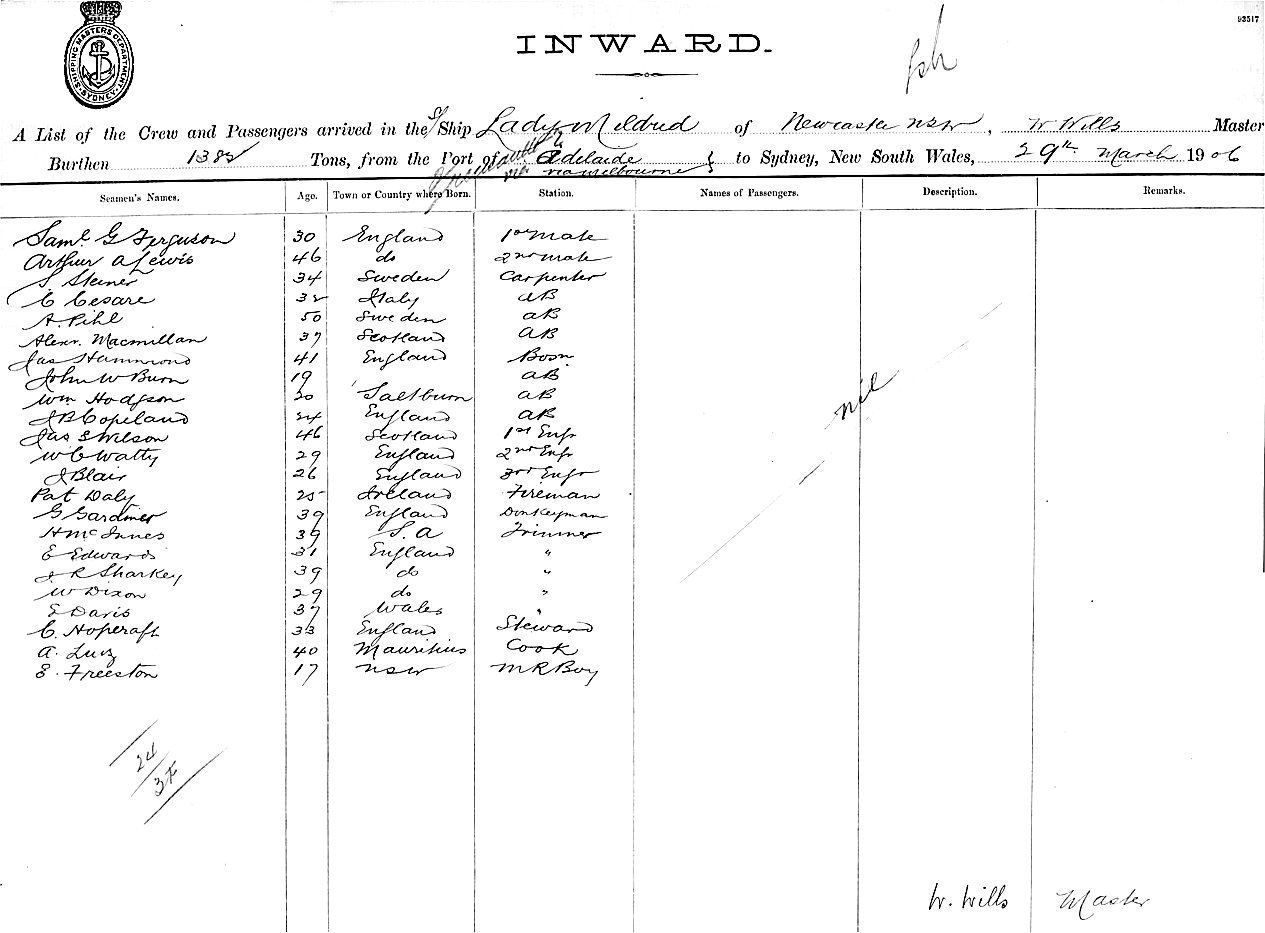 93517
SHIPPING MASTERS DEPARTMENT SYDNEY
INWARD.
A List of the Crew and Passengers arrived in the S/ Ship Lady Mildred of Newcastle NSW, W Wills Master
Burthen 1382 Tons, from the Port of via Adelaide via Melbourne to Sydney, New South Wales, 29th March 1906
Seamen's Names. Age. Town or Country where Born. Station. Names of Passengers. Description. Remarks.
Saml G Ferguson 30 England 1st Mate
Arthur A Lewis 46 do 2nd Mate
S Steiner 34 Sweden Carpenter
C Cesare 32 Italy AB
A. Pihl 50 Sweden AB
Alexr. Macmillan 37 Scotland AB
Jas Hammond 41 England Bosn
John W Burn 19 AB
Wm Hodgson 20 Saltburn AB
J B Copeland 24 England AB
Jas S Wilson 46 Scotland 1st Engr
W C Watty 29 England 2nd Engr
J Blair 26 England 3rd Engr
Pat Daly 25 Ireland Fireman
G Gardiner 39 England Donkeyman
H McInnes 39 S. A Trimmer
E Edwards 31 England "
J R Sharkey 39 do "
W Dixon 29 do "
E Davis 37 Wales "
C. Hopcraft 33 England Steward
A. Luiz 40 Mauritius Cook
E. Freeston 17 NSW M R Boy
nil
24/3
W. Wills Master